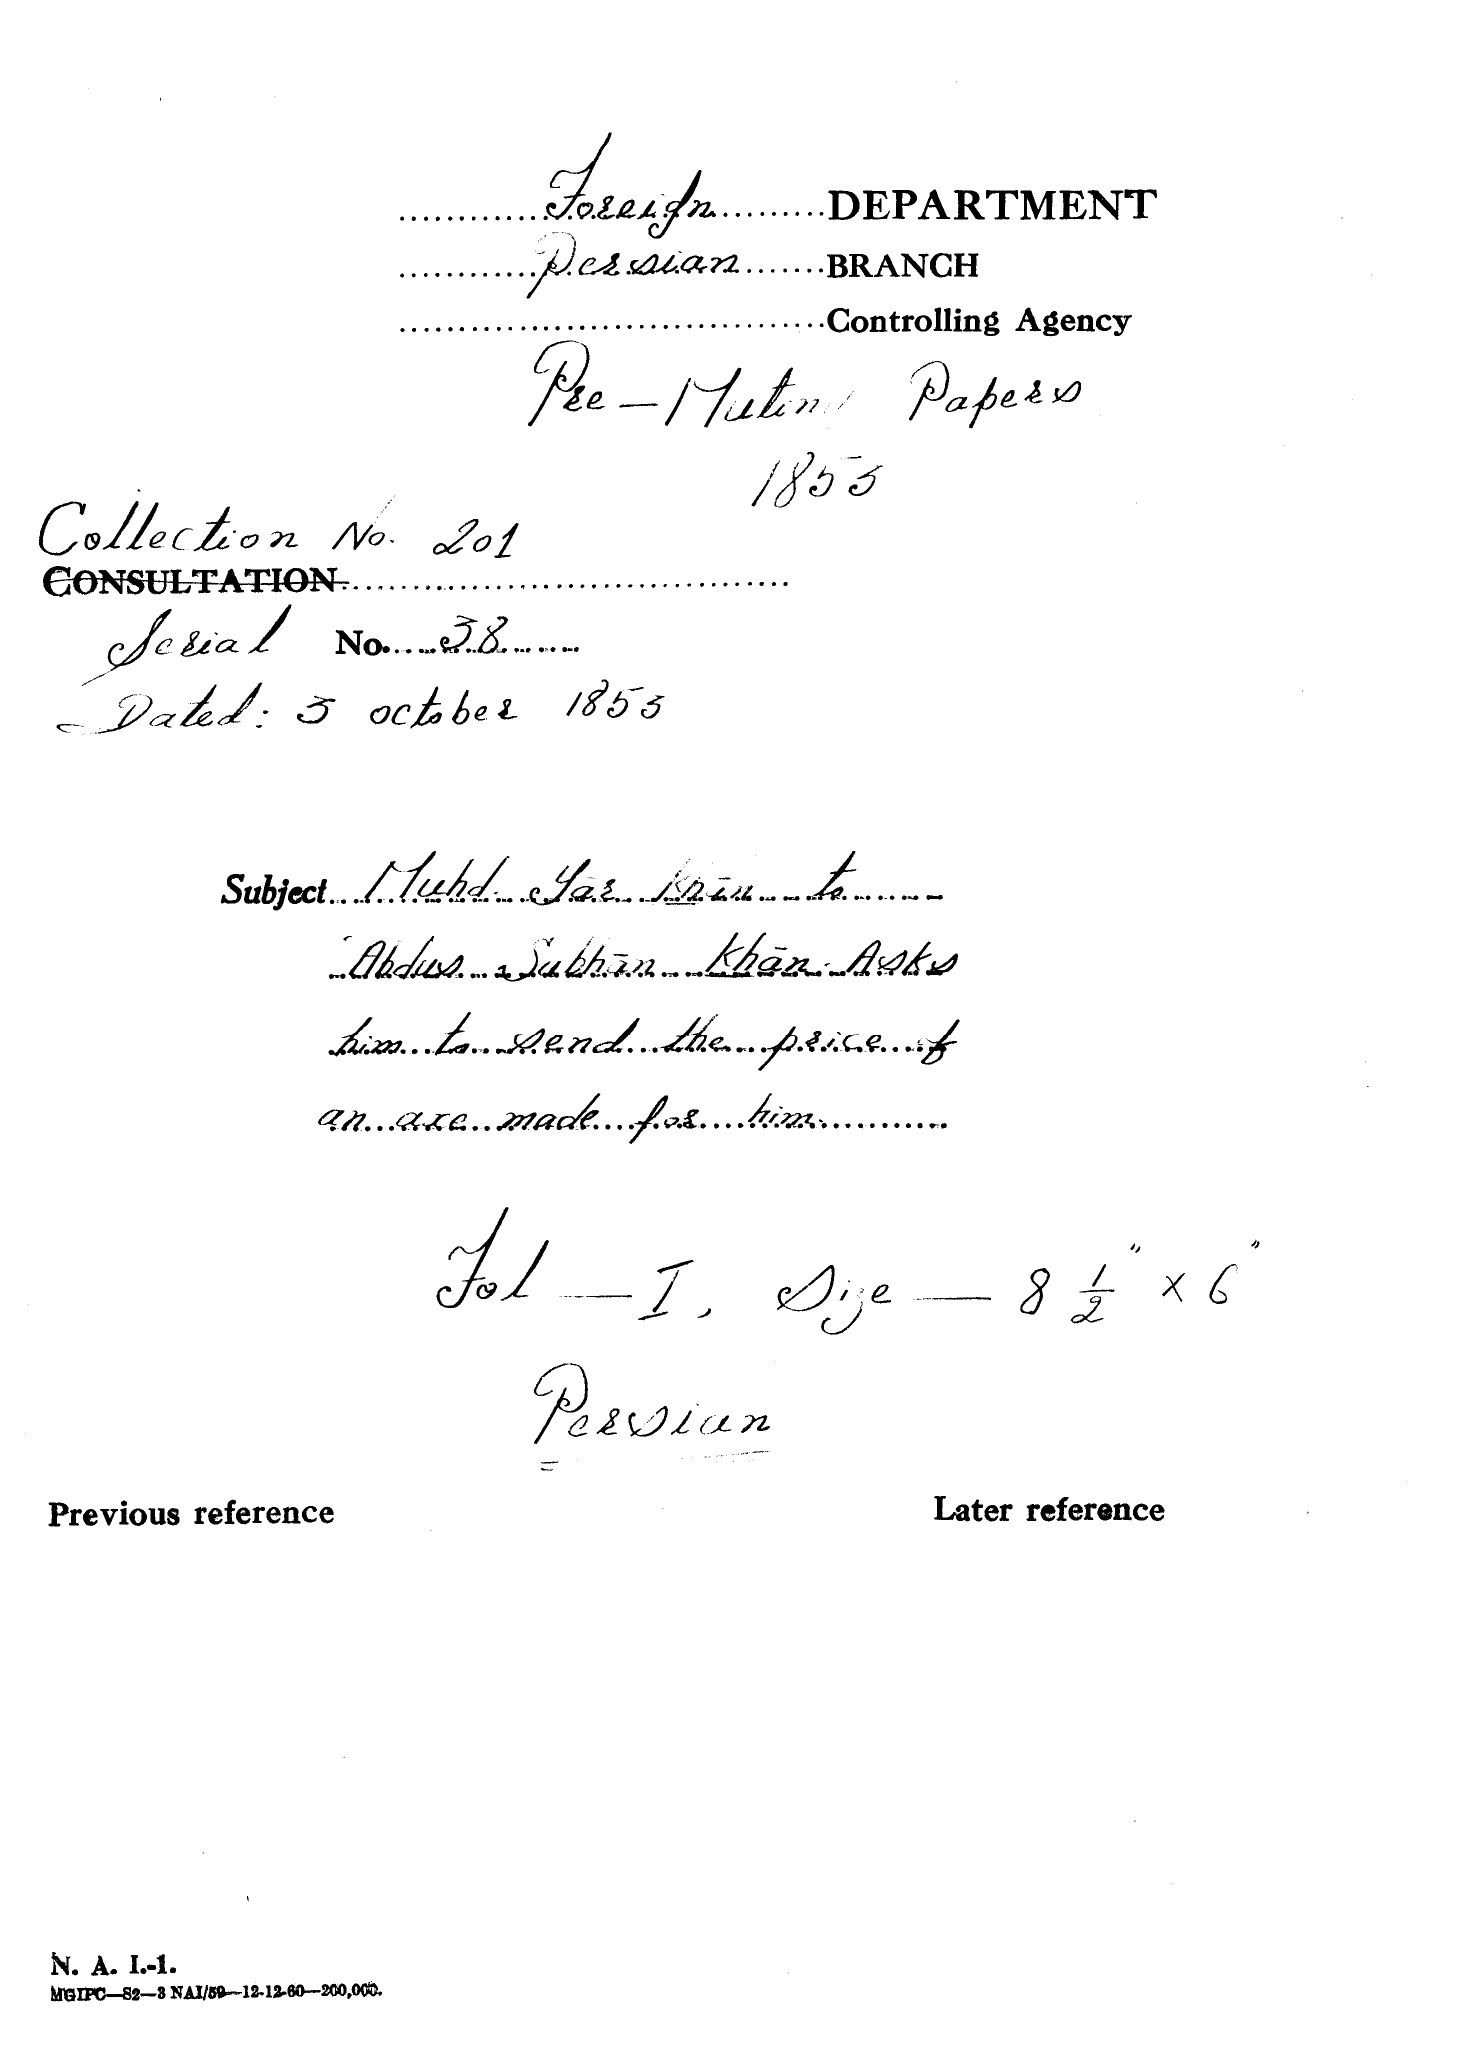 ............Foreign.........DEPARTMENT
............Persian.......BRANCH
....................................Controlling Agency
Pre – Mutiny Papers
1853
Collection No. 201
CONSULTATION......................................
Serial No....38......
Dated: 3 october 1853
Subject...Muhd. Yār Khān to.......
Abdus Subhān Khān. Asks
him to send the price of
an axe made for him...........
Fol — I, Size — 8 1/2" x 6"
Persian
Previous reference Later reference
N. A. I.-1.
MGIPC—S2—3 NAI/59—12-12-60—200,000.